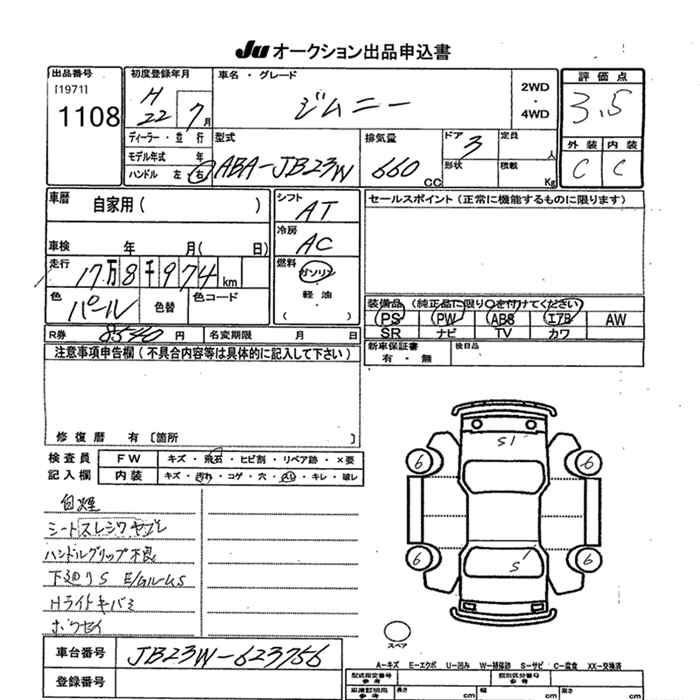 Ju オークション出品申込書
出品番号
[1971]
1108
初度登録年月
H
22 7月
車名・グレード
ジムニー
2WD
・
4WD
評価点
3,5
外装 内装
C C
ディーラー・並行
モデル年式 年
ハンドル 左 右
型式
ABA-JB23W
排気量
660 CC
ドア 3
形状
定員 人
積載 Kg
車歴 自家用( )
車検 年 月( 日)
走行 17万8千974km
色 パール 色替 色コード
シフト AT
冷房 AC
燃料 ガソリン
軽油
( )
セールスポイント(正常に機能するものに限ります)
装備品(純正品に限り○を付けてください)
PS PW ABS エアB AW
SR ナビ TV カワ
R券 8540円 名変期限 月 日
新車保証書 有・無 後日品
注意事項申告欄(不具合内容等は具体的に記入して下さい)
修復歴 有〔箇所 〕
検査員 FW キズ・飛石・ヒビ割・リペア跡・×要
記入欄 内装 キズ・汚れ・コゲ・穴・スレ・キレ・破レ
白煙
シートスレシワヤブレ
ハンドルグリップ不良
下廻りS E/GルームS
Hライトキバミ
ボウセイ
S1
6 6
6 6
S1
スペア
車台番号 JB23W-623756
登録番号
A-キズ E-エクボ U-凹み W-補修跡 S-サビ C-腐食 XX-交換済
型式指定番号 参考
類別区分番号 参考
車庫証明用 参考 長さ cm 幅 cm 高さ cm